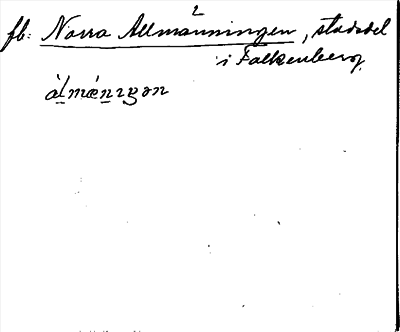 2
fb: Norra Allmänningen, stadsdel
i Falkenberg.
àlmǽnıŋən